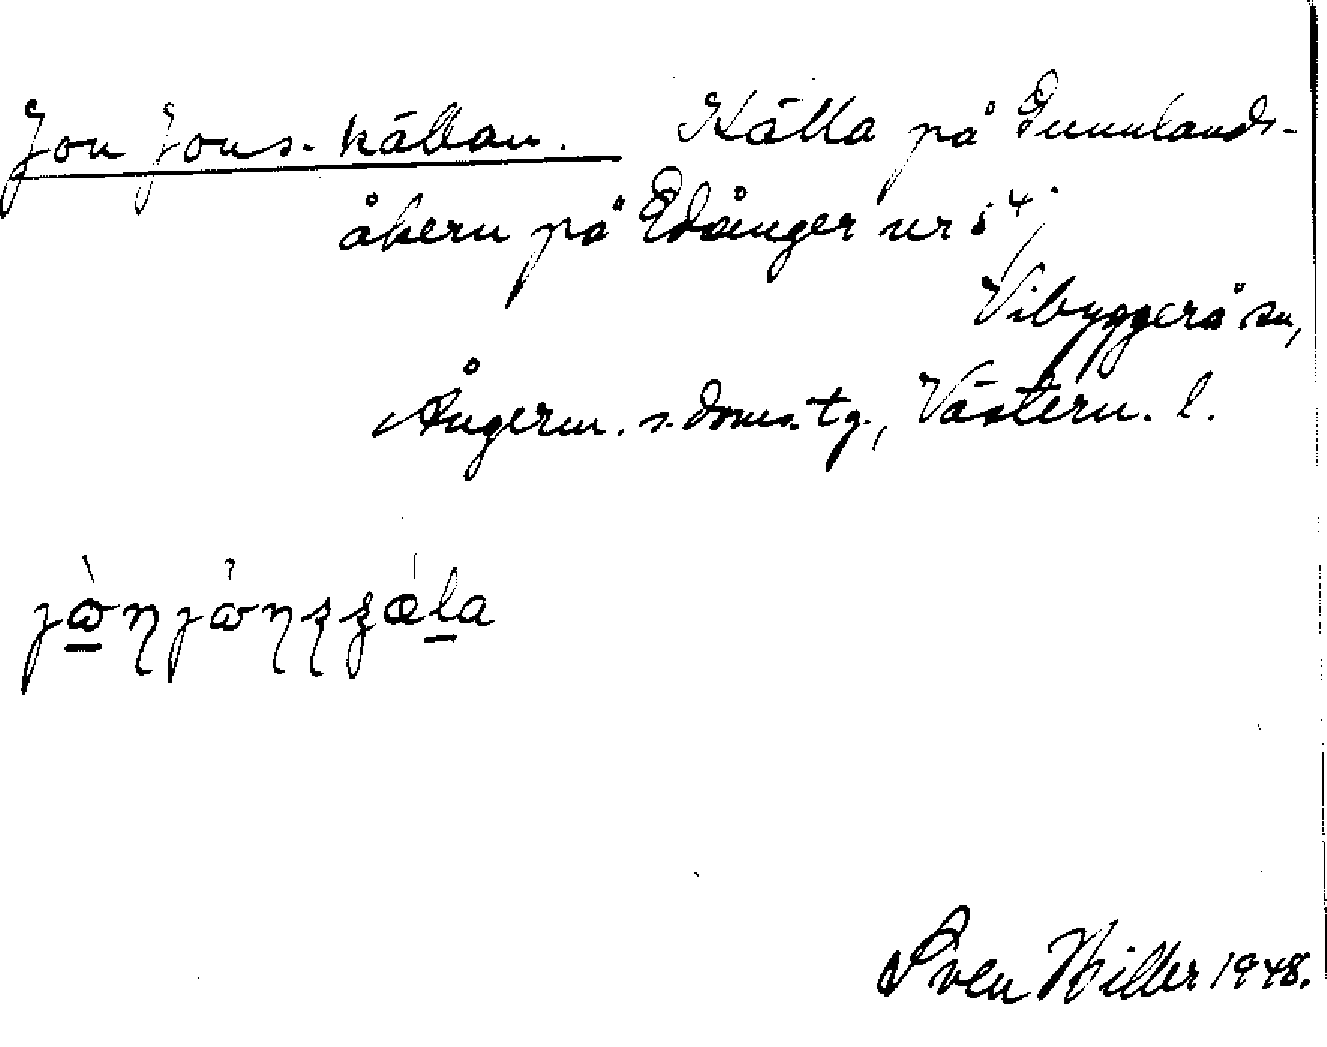 Jon Jons-källan. Källa på Gunnlands-
åkern på Edånger nr 5⁴,
Vibyggerå sn,
Ångerm. s. doms. tg., Västern. l.
Sven Hiller 1948.